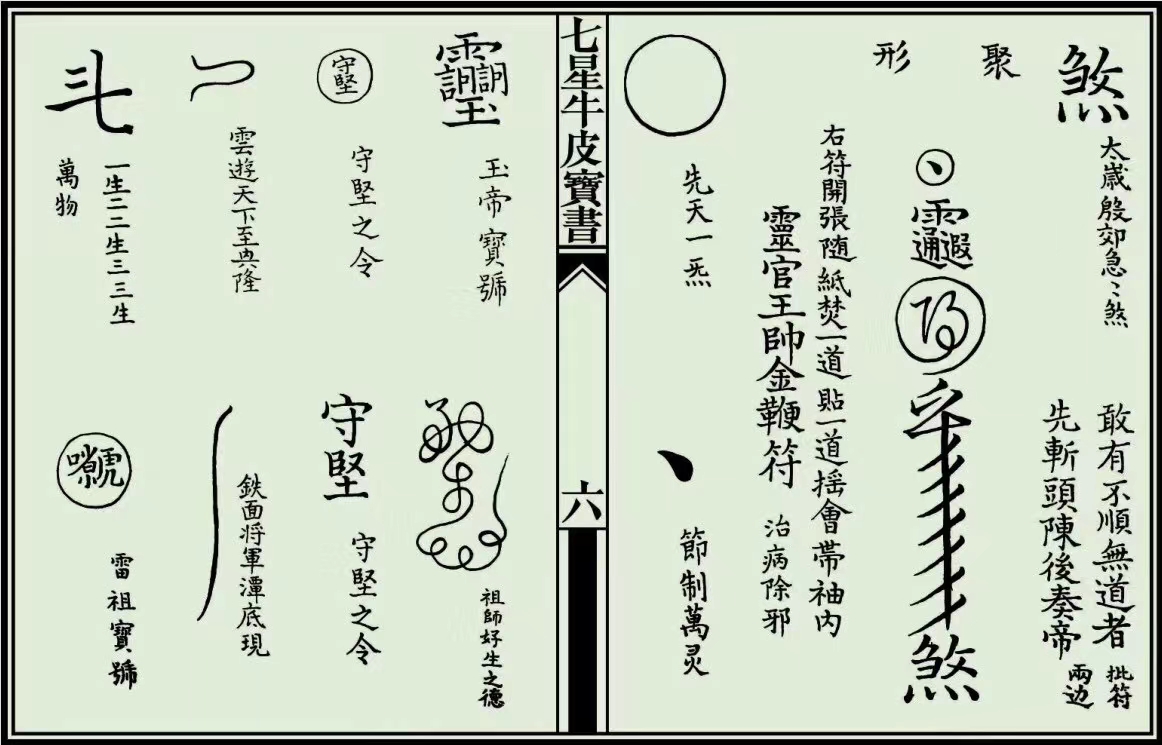 煞
太歲殷郊急〻煞
敢有不順無道者
先斬頭陳後奏帝
批符
兩边
聚
形
煞
右符開張随紙焚一道貼一道揺會帯袖内
靈官王帥金鞭符
治病除邪
先天一炁
節制萬灵
七星牛皮寶書
六
玉帝寶號
祖師好生之德
守堅
守堅之令
守堅
守堅之令
雲遊天下至典隆
鉄面将軍潭底現
斗
一生二二生三三生
萬物
雷祖寶號